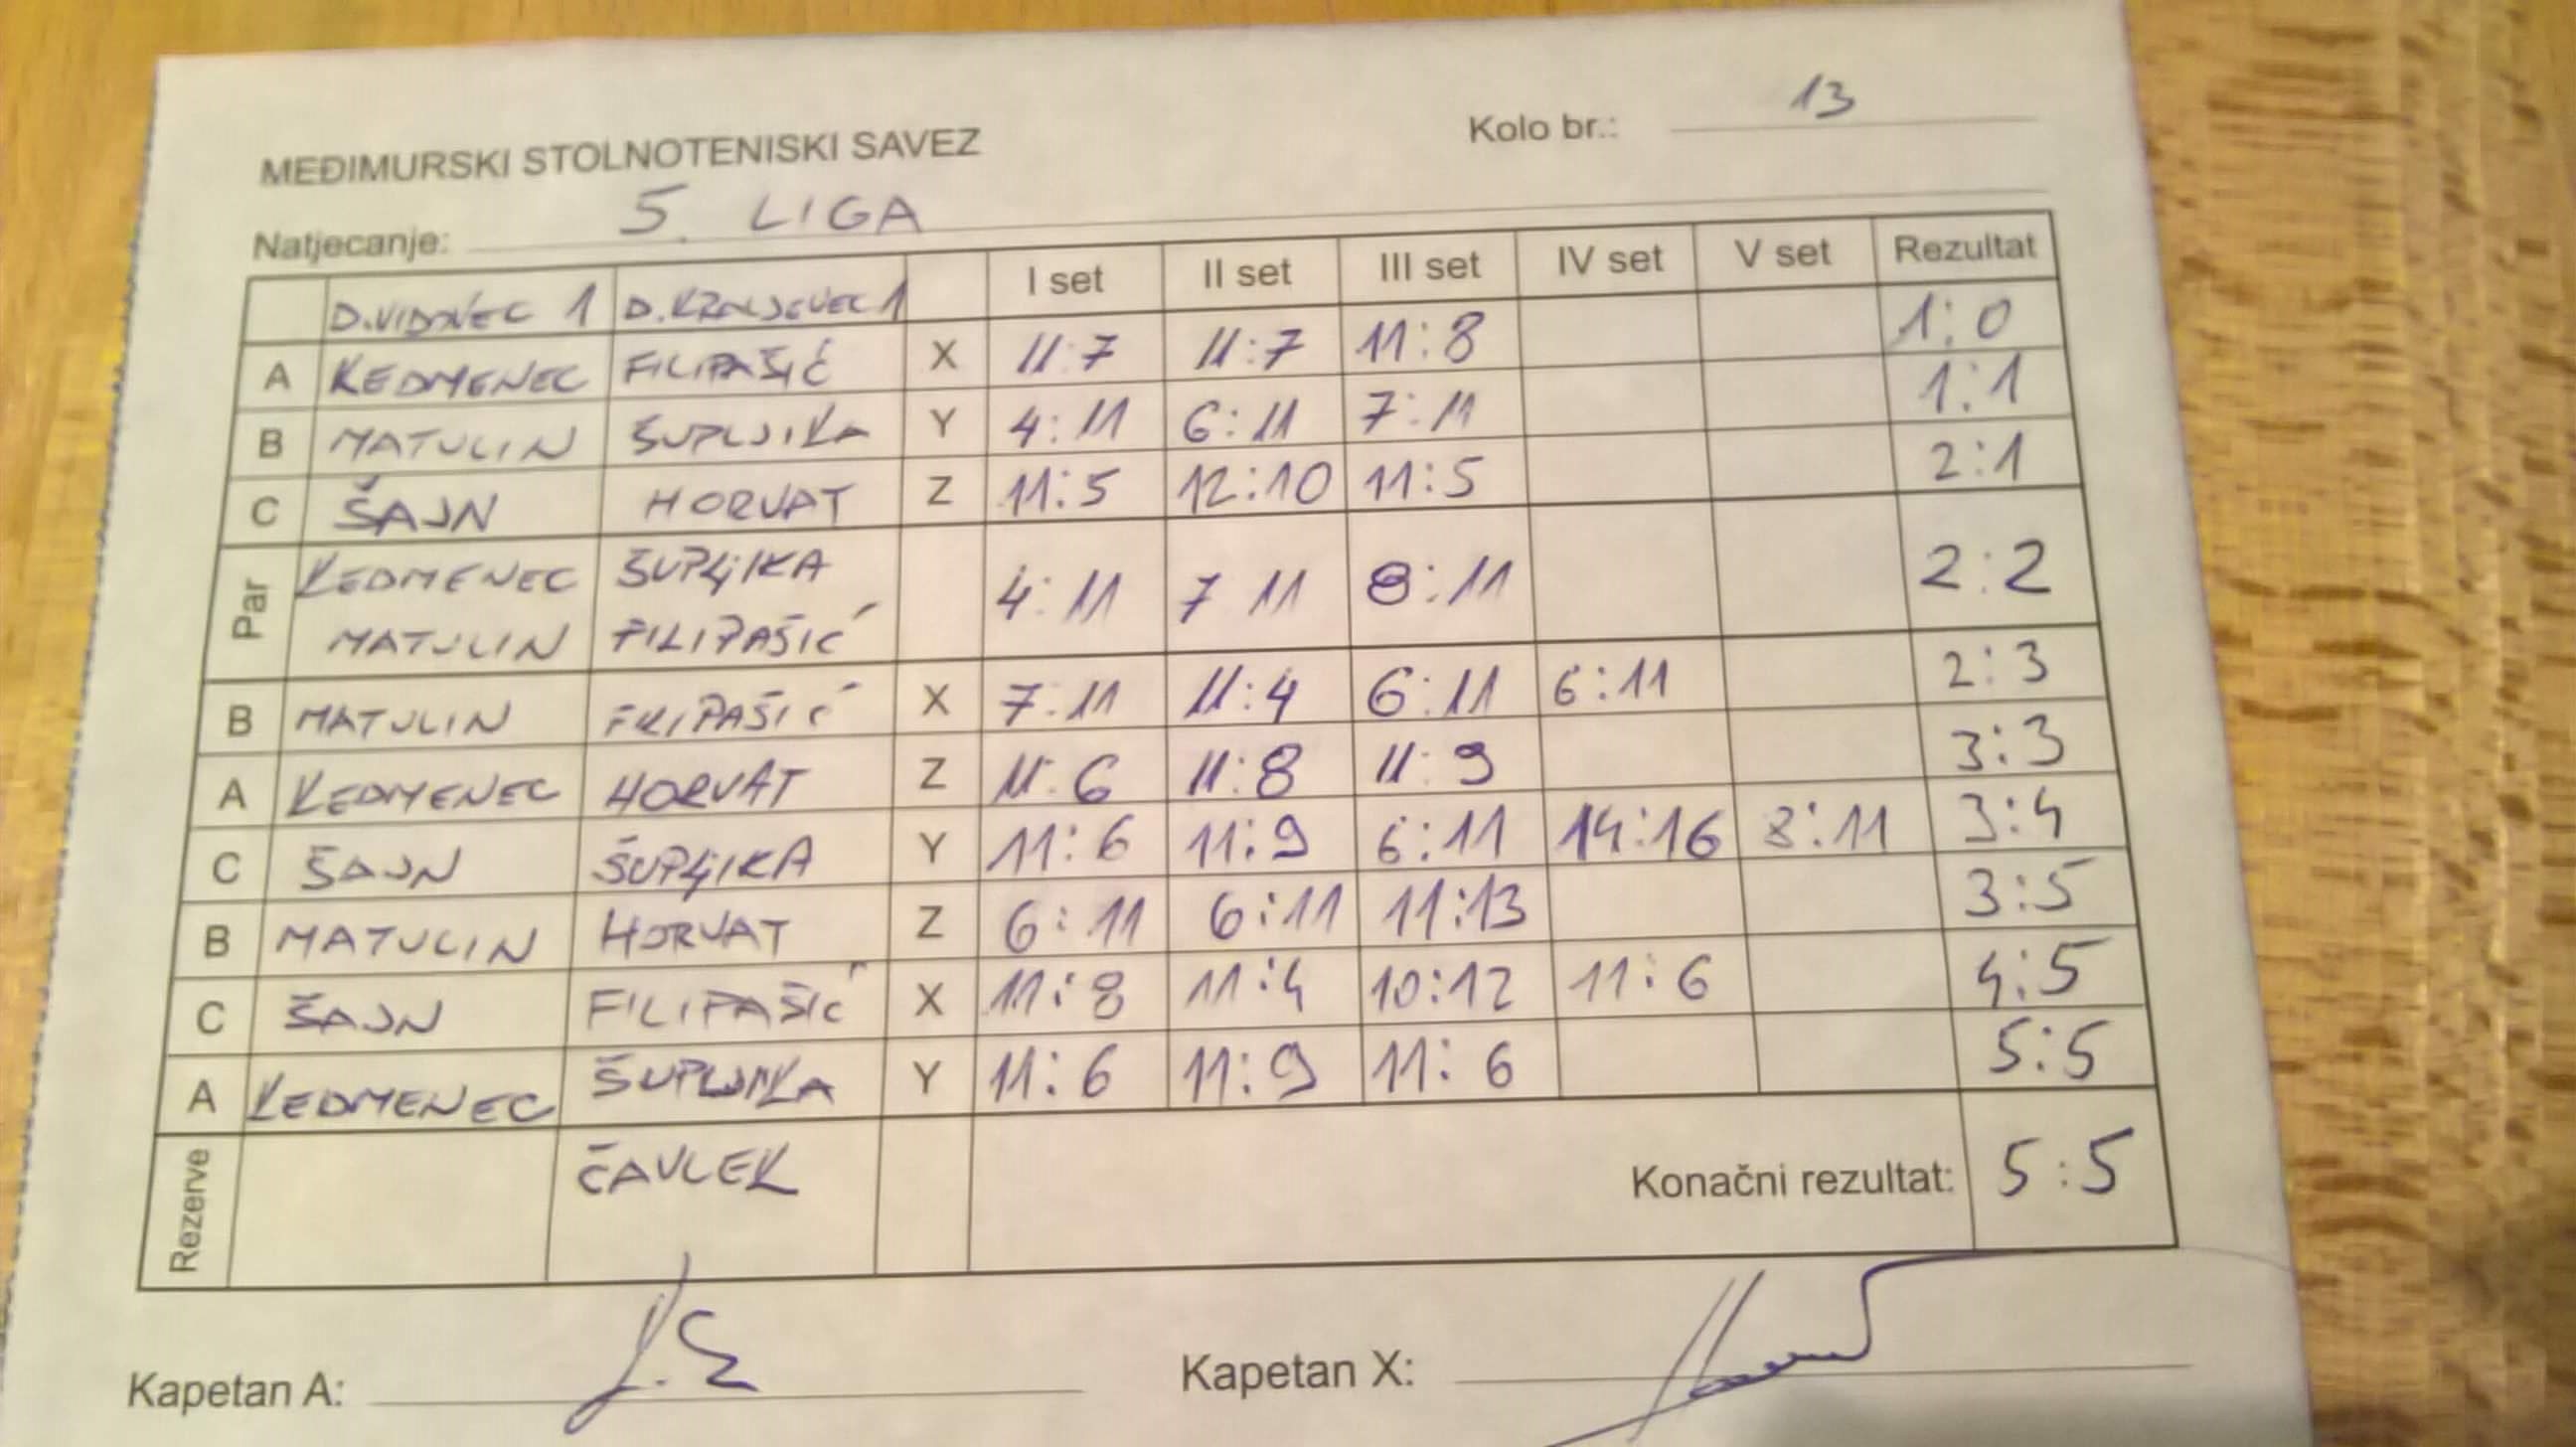 Kolo br.: 13
MEĐIMURSKI STOLNOTENISKI SAVEZ
Natjecanje: 5. LIGA
D.VIDOVEC 1 D.KRALJEVEC 1 I set II set III set IV set V set Rezultat
A KEDMENEC FILIPAŠIĆ X 11:7 11:7 11:8 1:0
B MATULIN ŠUPLJIKA Y 4:11 6:11 7:11 1:1
C ŠAJN HORVAT Z 11:5 12:10 11:5 2:1
Par KEDMENEC ŠUPLJIKA 4:11 7 11 8:11 2:2
MATULIN FILIPAŠIĆ
B MATULIN FILIPAŠIĆ X 7:11 11:4 6:11 6:11 2:3
A KEDMENEC HORVAT Z 11:6 11:8 11:9 3:3
C ŠAJN ŠUPLJIKA Y 11:6 11:9 6:11 14:16 8:11 3:4
B MATULIN HORVAT Z 6:11 6:11 11:13 3:5
C ŠAJN FILIPAŠIĆ X 11:8 11:4 10:12 11:6 4:5
A KEDMENEC ŠUPLJIKA Y 11:6 11:9 11:6 5:5
Rezerve ČAVLEK Konačni rezultat: 5:5
Kapetan A: Kapetan X: